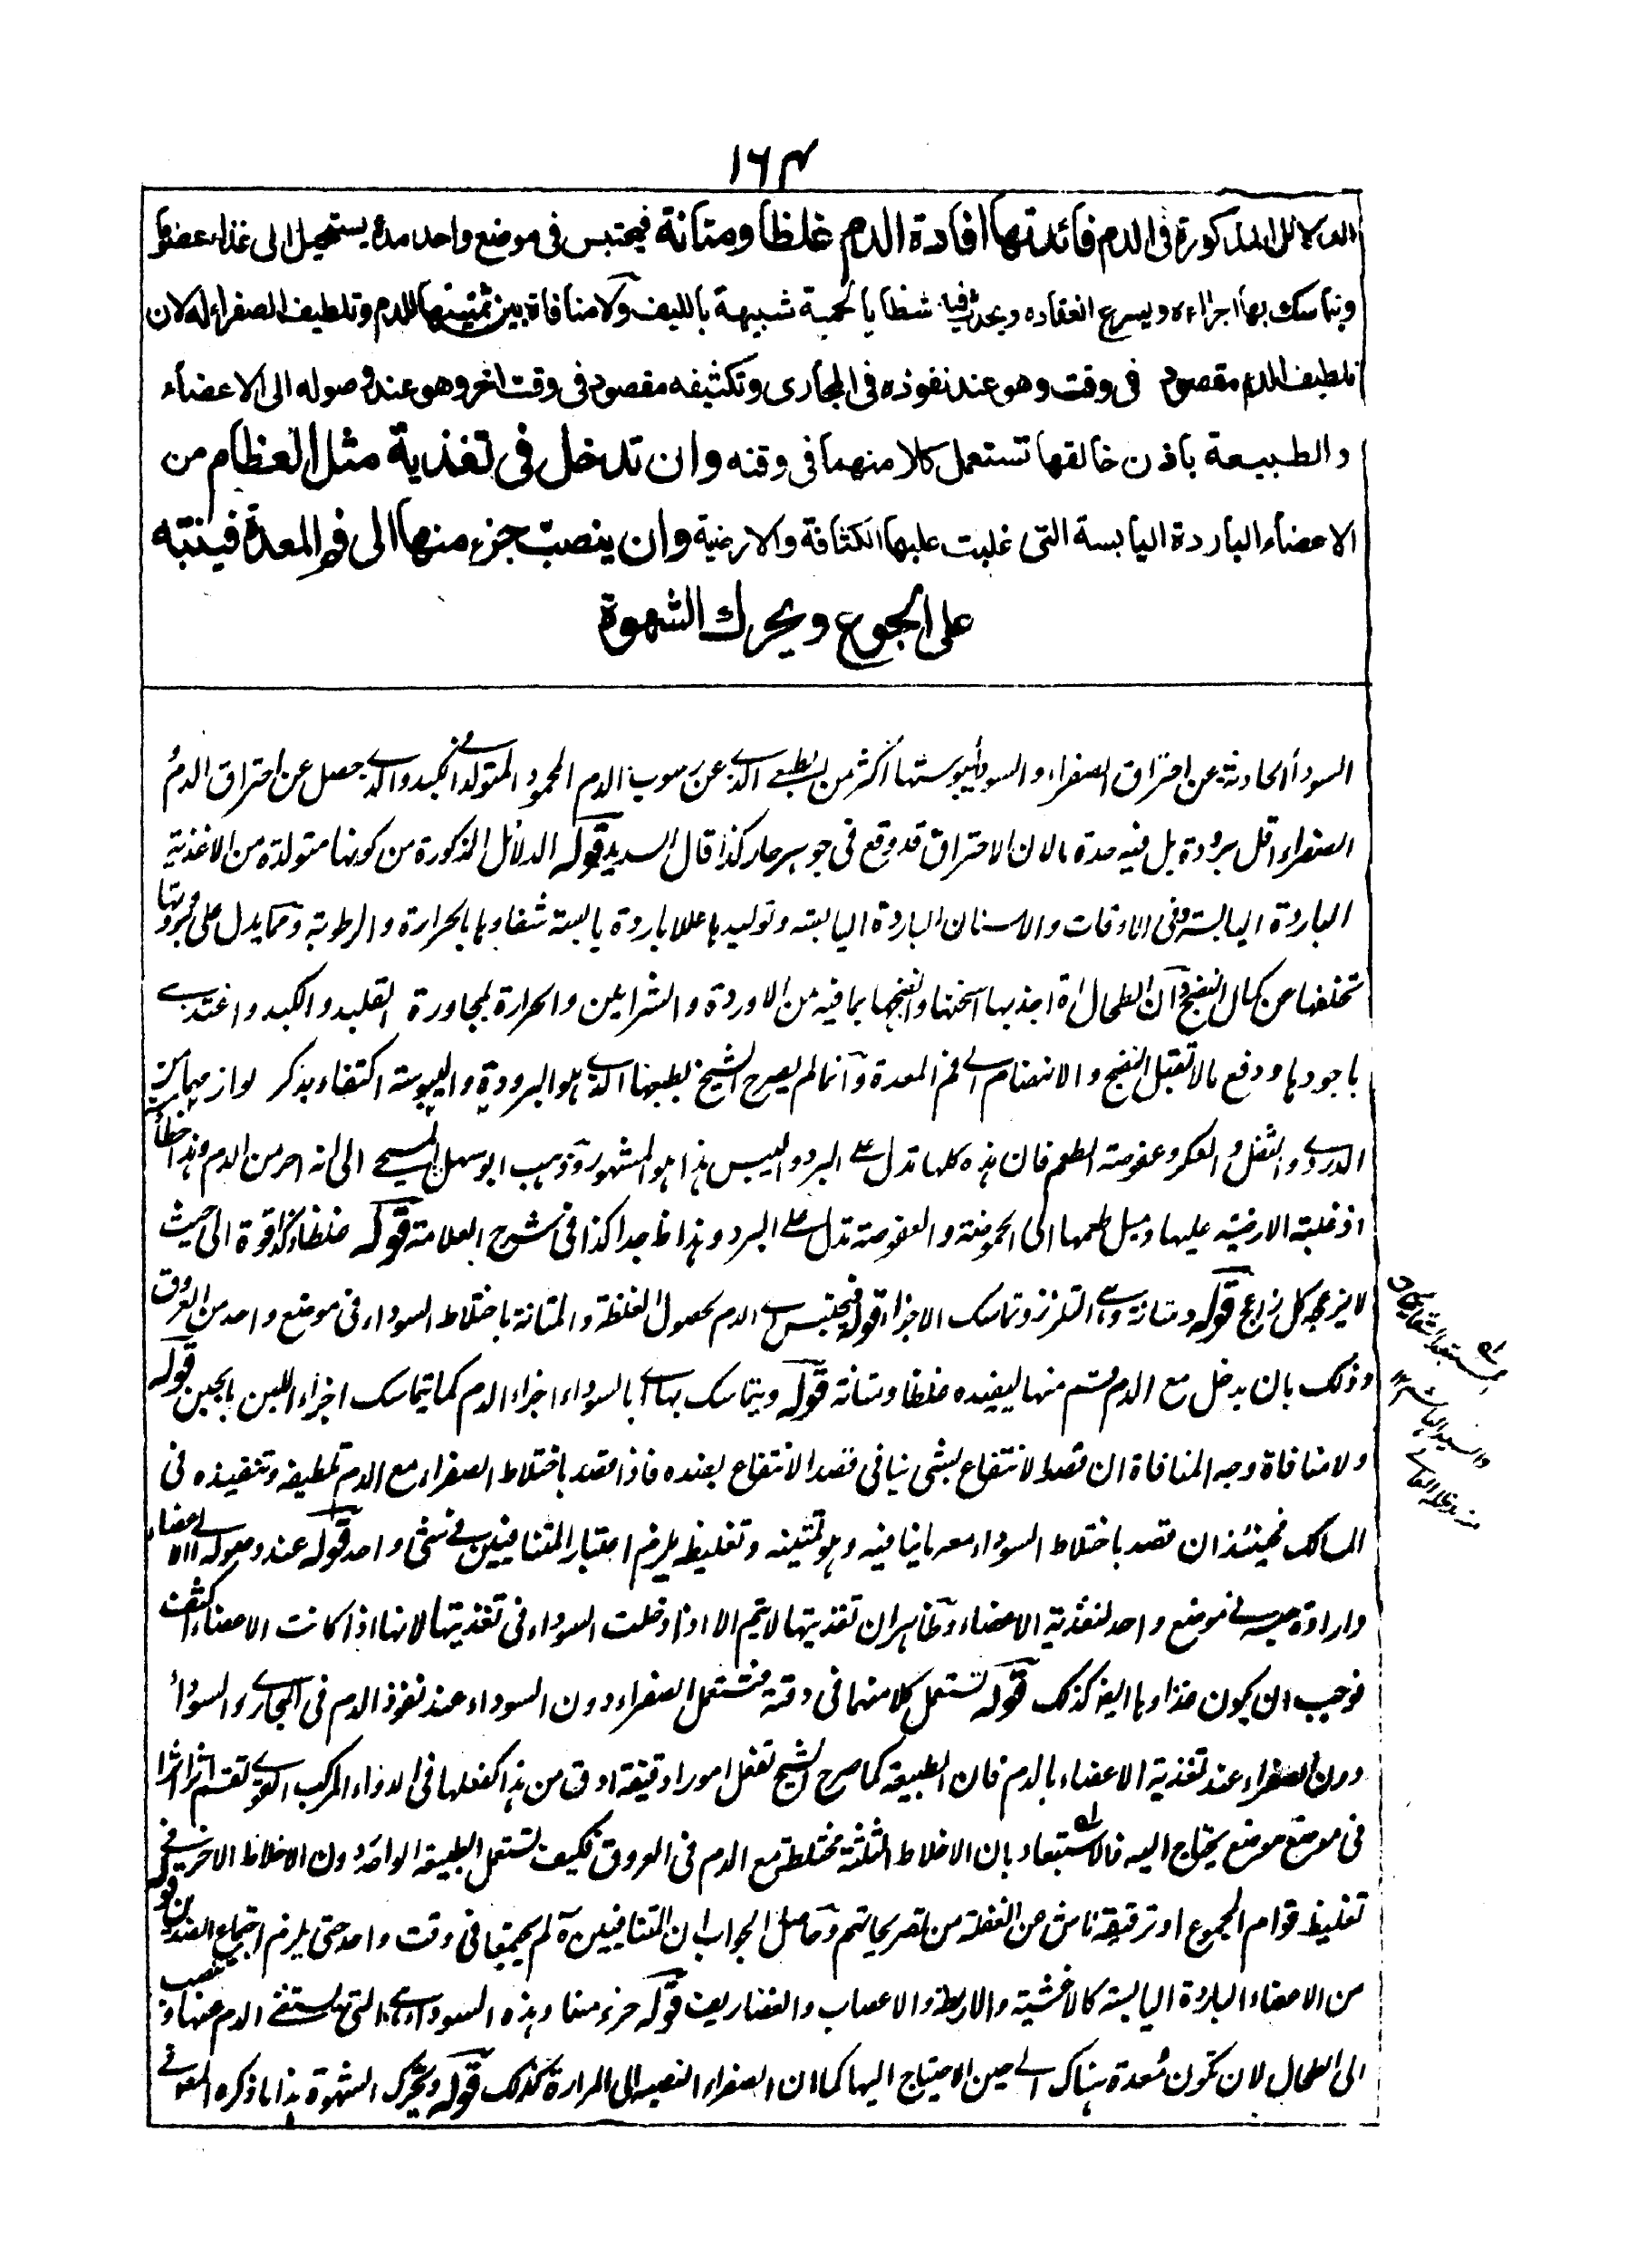 ١٦٣
الدلائل المذكورة فى الدم فائدتها افادة الدم غلظا ومتانة فيحتبس فى موضع واحد مدة يستحيل الى غذاء عضو ما
ويتماسك بها اجزاءه ويسرع انعقاده ويحدث فيه شظايا لحمية شبيهة بالليف ولا منافاة بين تمتينها للدم وتلطيف الصفراء له لان
تلطيف الدم مقصود فى وقت وهو عند نفوذه فى المجارى وتكثيفه مقصود فى وقت اخر وهو عند وصوله الى الاعضاء
والطبيعة باذن خالقها تستعمل كلا منهما فى وقته وان تدخل فى تغذية مثل العظام من
الاعضاء الباردة اليابسة التى غلبت عليها الكثافة والارضية وان ينصب جزء منها الى فم المعدة فينبّه
على الجوع ويحرك الشهوة
السوداء الحادثة عن احتراق الصفراء والسوداء يبوستها اكثر من الطبعے الذے عن رسوب الدم المحمود المتولد فے الكبد والذے حصل عن احتراق الدم
الصفراء اقل برودة بل فيه حدة ما لان الاحتراق قد وقع فى جوهر حار كذا قال السديد قوله الدلائل المذكورة من كونها متولدة من الاغذية
الباردة اليابسة وفى الاوقات والاسنان الباردة اليابسة وتوليدها عللا باردة يابسة شفاوها بالحرارة والرطوبة ومما يدل على برودتها
تخلفها عن كمال النضج وان الطحال اذا جذبها اسخنها وانضجها بما فيه من الاوردة والشرايين والحرارة لمجاورة القلب والكبد واغتذے
باجودها ودفع ما لا تقبل النضج والانهضام الے فم المعدة وانما لم يصرح الشيخ بطبعها الذے هو البرودة واليبوسة اكتفاء بذكر لوازمها من
الدردے والثفل والعكر وعفوصة الطعم فان هذه كلها تدل علے البرد واليبس هذا هو المشهور وذهب ابو سهل المسيحے الى انه احر من الدم وهذا خطأ
اذ غلبة الارضية عليها وميل طعمها الى الحموضة والعفوصة تدل علے البرد وهذا ظ جدا كذا فى شرح العلامة قوله غلظا وكذا قوة الى حيث
لا يزعجه كل زاعج قوله ومتانة وهے التلزز وتماسك الاجزاء قوله فيحتبس اے الدم لحصول الغلظة والمتانة باختلاط السوداء فى موضع واحد من العروق
وذلك بان يدخل مع الدم قسم منها ليفيده غلظا ومتانة قوله ويتماسك بها اے بالسوداء اجزاء الدم كما يتماسك اجزاء اللبن بالجبن قوله
ولا منافاة وجه المنافاة ان قصد الانتفاع بشئ ينافى قصد الانتفاع بضده فاذا قصد باختلاط الصفراء مع الدم تلطيفه وتنفيذه فى
المسالك فحينئذ ان قصد باختلاط السوداء معه ما ينافيه وهو تمتينه وتغليظه يلزم اعتبار المتنافيين فے شئ واحد قوله عند وصوله الے الاعضاء
وارادة حبسه فے موضع واحد لتغذية الاعضاء وظاهر ان تغذيتها لا يتم الا اذا دخلت السوداء فى تغذيتها لانها اذا كانت الاعضاء كثفت
فوجب ان يكون غذاوها ايضا كذلك قوله تستعمل كلا منهما فى وقته فتستعمل الصفراء دون السوداء عند نفوذ الدم فى المجارے والسوداء
دون الصفراء عند تغذية الاعضاء بالدم فان الطبيعة كما صرح الشيخ تفعل امورا دقيقة ادق من هذا كفعلها فى الدواء المركب القوے تقسم اثرا اثرا
فى موضع موضع يحتاج اليه فالاستبعاد بان الاخلاط الثلثة مختلطة مع الدم فى العروق فكيف تستعمل الطبيعة الواحد دون الاخلاط الاخرے فے
تغليظ قوام المجموع او ترقيقه ناش عن الغفلة من تصريحاتهم وحاصل الجواب ان المتنافيين لم يجتمعا فى وقت واحد حتى يلزم اجتماع الضدين قوله
من الاعضاء الباردة اليابسة كالاغشية والاربطة والاعصاب والغضاريف قوله جزء منها وهذه السوداء هے التى يستغنے الدم عنها وتنصب
الى الطحال لان تكون مُعدة هناك الے حين الاحتياج اليها كما ان الصفراء المنصبة الى المرارة كذلك قوله ويحرك الشهوة هذا ما ذكره